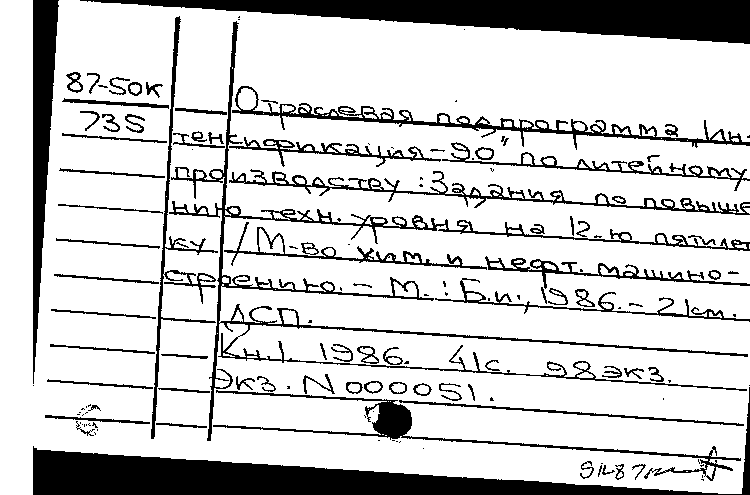 87-50к
735
Отраслевая подпрограмма „Ин-
тенсификация-90" по литейному
производству: Задания по повыше
нию техн. уровня на 12-ю пятилет
ку / М-во хим. и нефт. машино-
строению. - М.: Б.и., 1986. - 21см.
ДСП.
Кн.1. 1986. 41с. 98экз.
Экз. N000051.